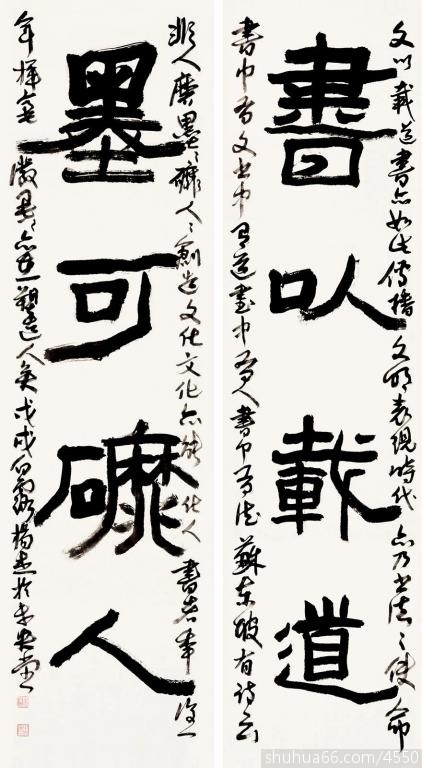 書以載道
墨可礳人
文以載道書亦如此傳播文明表現時代亦乃書法之使命
書中有文書中有道書中有人書中有德蘇東坡有詩云
非人磨墨墨磨人人創造文化文化亦能化人書者
年揮毫墨亦塑造人矣戊戌楊杰於未央堂
shuhua66.com/4550